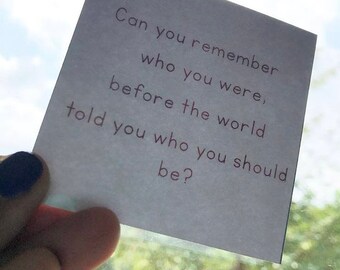 Can you remember
who you were,
before the world
told you who you should
be?